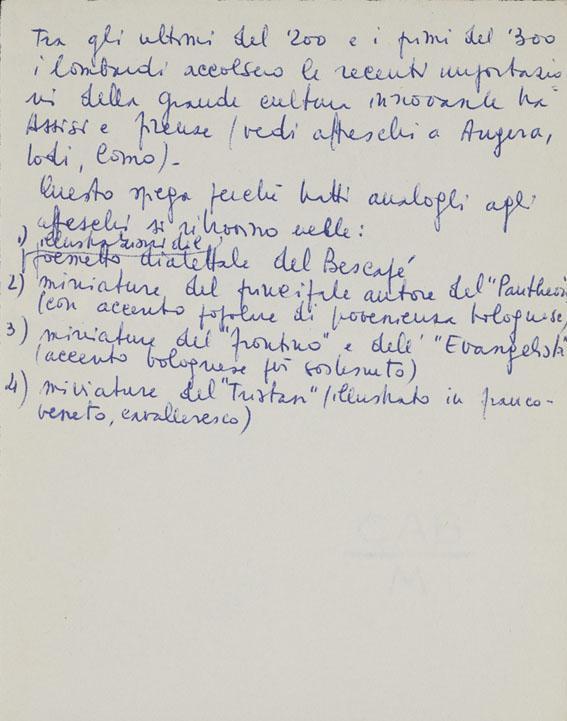 Tra gli ultimi del '200 e i primi del '300
i lombardi accolsero le recenti importazio
ni della grande cultura innovante tra
Assisi e firenze (vedi affreschi a Angera,
Lodi, Como).
Questo spiega perchè tratti analoghi agli
affreschi si ritrovino nelle:
1) illustrazioni del
poemetto dialettale del Bescapé
2) miniature del principale autore del "Pantheon
(con accento popolare di provenienza bolognese)
3) miniature del "frontino" e dell' "Evangelista"
(accento bolognese più sostenuto)
4) miniature del "Tristan" (illustrato in franco-
veneto, cavalleresco)
CAB
M